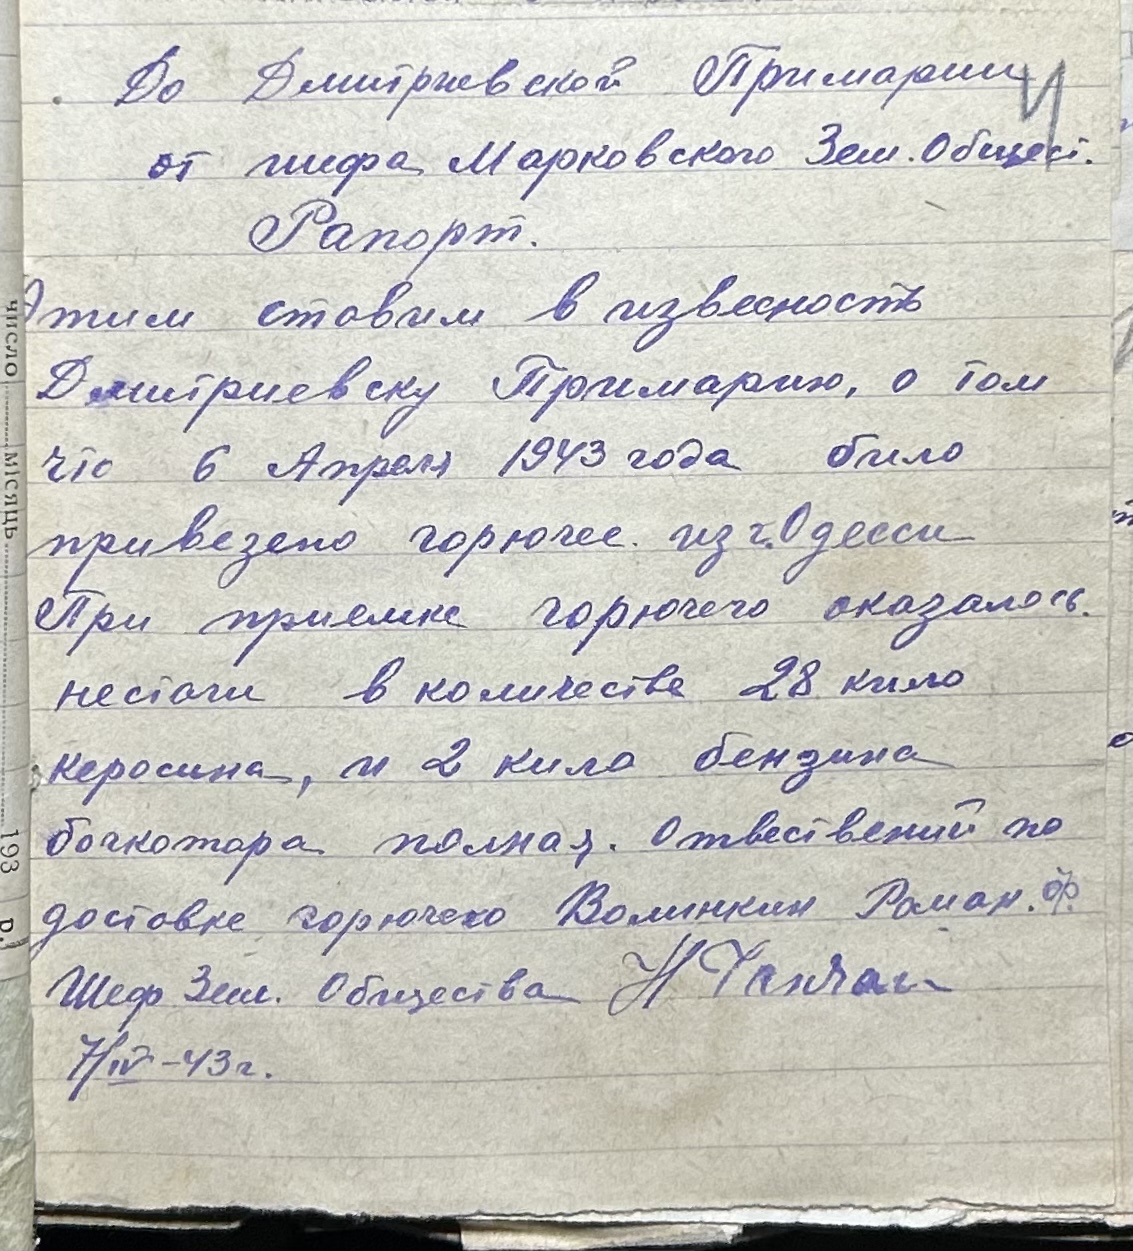 До Дмитриевской Примарии
от шефа Марковского Зем. Общест.
Рапорт.
Этим ставим в извесность
Дмитриевску Примарию, о том
что 6 Апреля 1943 года било
привезено горючее. из г. Одесси
При приемке горючего оказалось
нестачи в количестве 28 кило
керосина, и 2 кило бензина
бочкотара полная. Отвествений по
доставке горючего Волинкин Роман. Ф.
Шеф Зем. Общества
7/IV-43 г.
число
місяць
193
р.